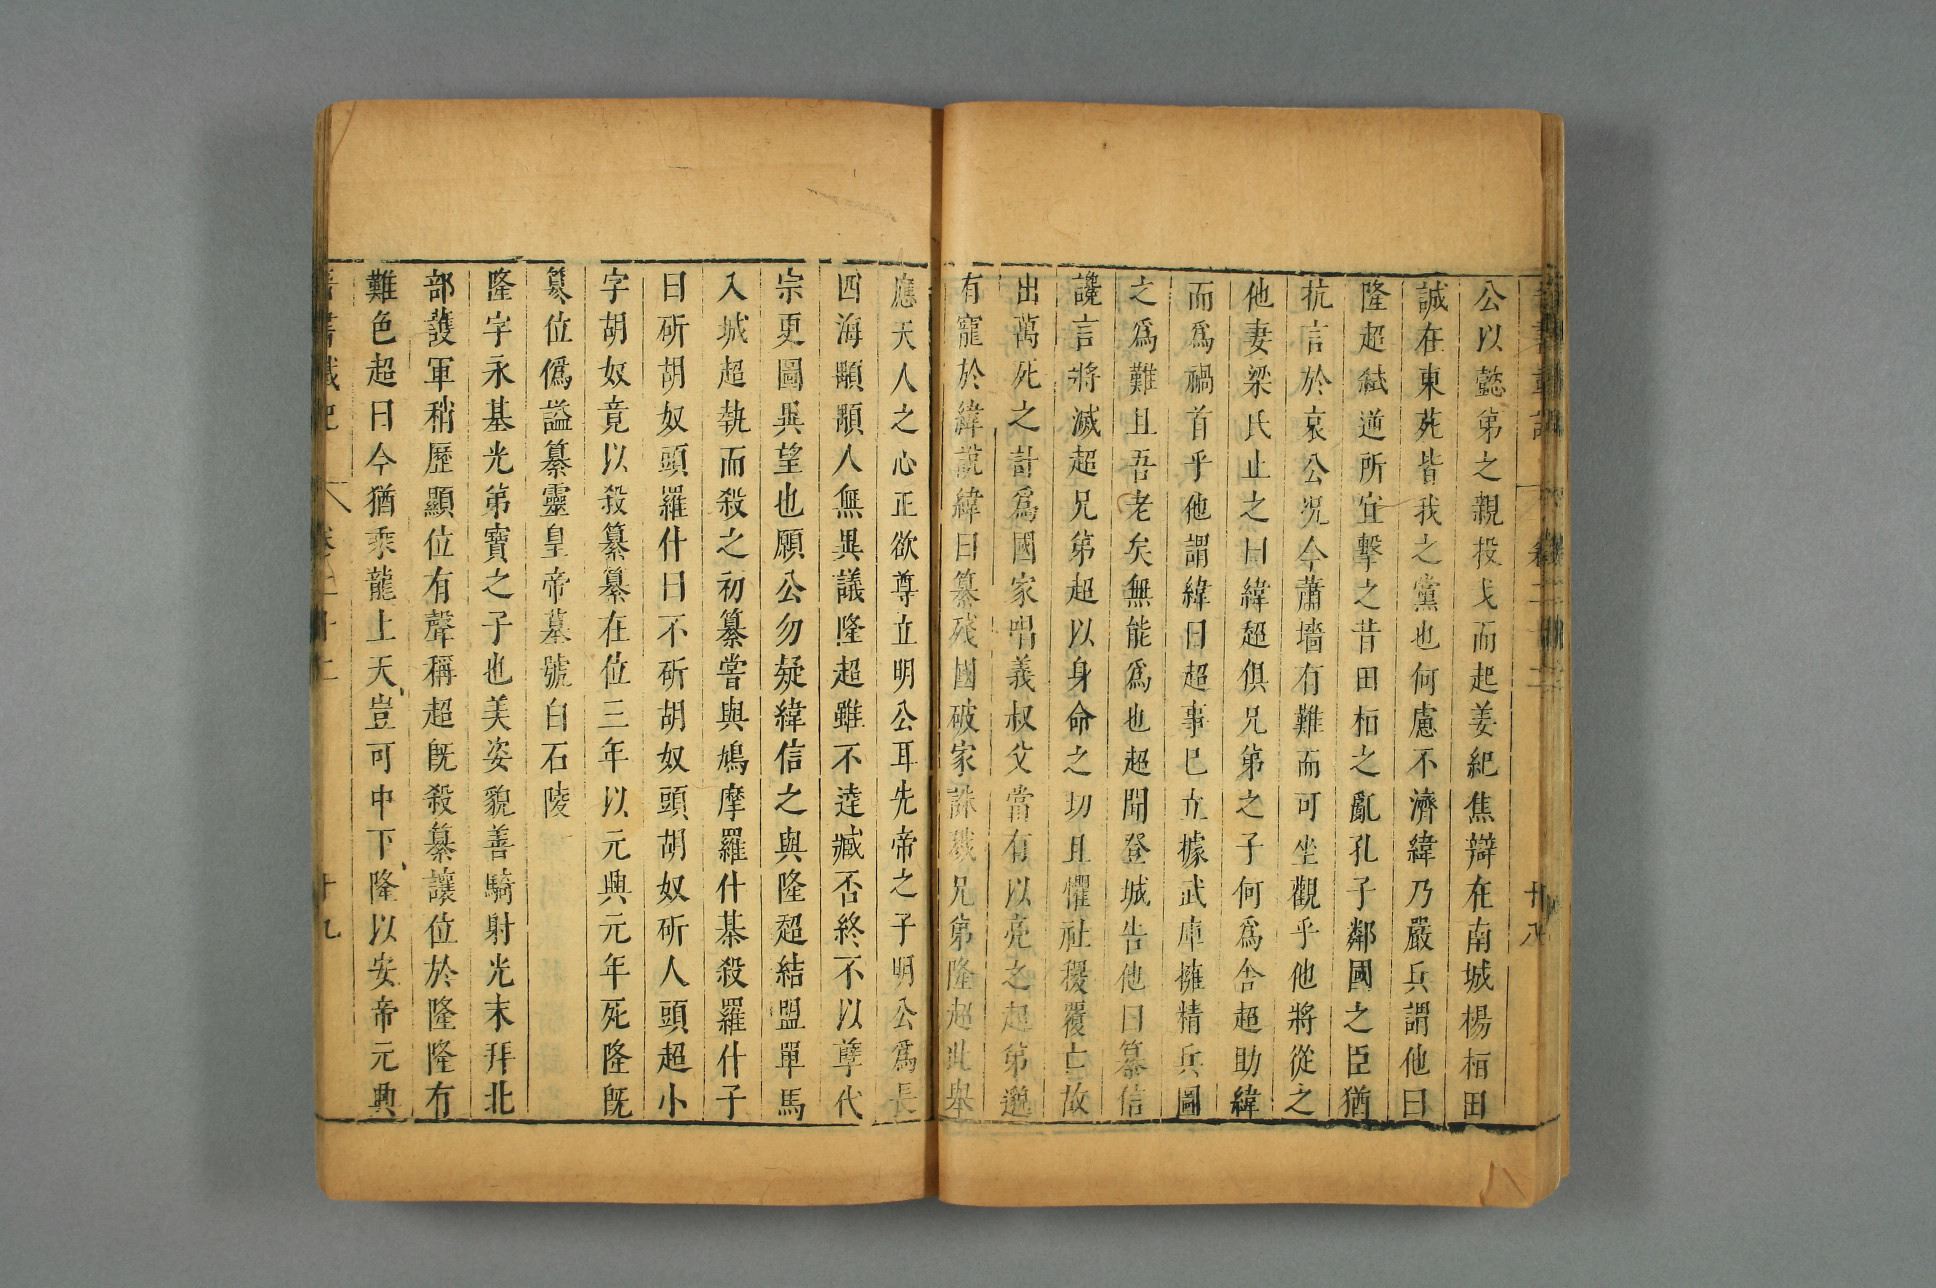 公以懿第之親投戈而起姜紀焦辯在南城楊桓田
誠在東苑皆我之黨也何慮不濟緯乃嚴兵謂他曰
隆超弑逆所宜擊之昔田栢之亂孔子鄰國之臣猶
抗言於哀公况今蕭墻有難而可坐觀乎他將從之
他妻梁氏止之曰緯超俱兄第之子何爲舍超助緯
而爲禍首乎他謂緯曰超事已立據武庫擁精兵圖
之爲難且吾老矣無能爲也超聞登城告他曰纂信
讒言將滅超兄第超以身命之切且懼社稷覆亡故
出萬死之計爲國家唱義叔父當有以亮之超第邈
有寵於緯說緯曰纂殘國破家誅戮兄第隆超此舉
應天人之心正欲尊立明公耳先帝之子明公爲長
四海顒顒人無異議隆超雖不逹臧否終不以孽代
宗更圖異望也願公勿疑緯信之與隆超結盟單馬
入城超執而殺之初纂嘗與鳩摩羅什棊殺羅什子
曰斫胡奴頭羅什曰不斫胡奴頭胡奴斫人頭超小
字胡奴竟以殺纂纂在位三年以元興元年死隆旣
篡位僞謚纂靈皇帝墓號白石陵
隆字永基光第寶之子也美姿貌善騎射光末拜北
部護軍稍歷顯位有聲稱超旣殺纂讓位於隆隆有
難色超曰今猶乘龍上天豈可中下隆以安帝元興
晋書載記 卷二十二 十九